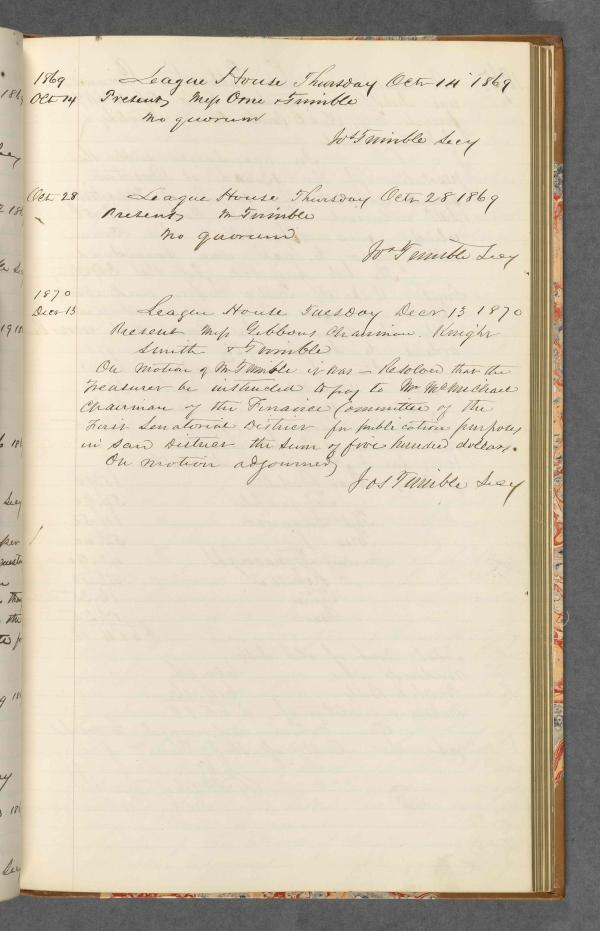 1869 League House Thursday Octr 14 1869
Oct 14 Present, Mess Orne & Trimble
no quorum
Jos Trimble Secy
Oct 28 League House Thursday Octr 28 1869
Present, Mr Trimble
no quorum
Jos Trimble Secy
1870
Decr 13 League House Tuesday Decr 13 1870
Present Mess Gibbons Chairman. Knight
Smith & Trimble
On motion of Mr Trimble it was – Resolved that the
Treasurer be instructed to pay to Mr McMichael
Chairman of the Finance Committee of the
First Senatorial District for publication purposes
in said District the sum of five hundred dollars.
On motion adjourned
Jos Trimble Secy